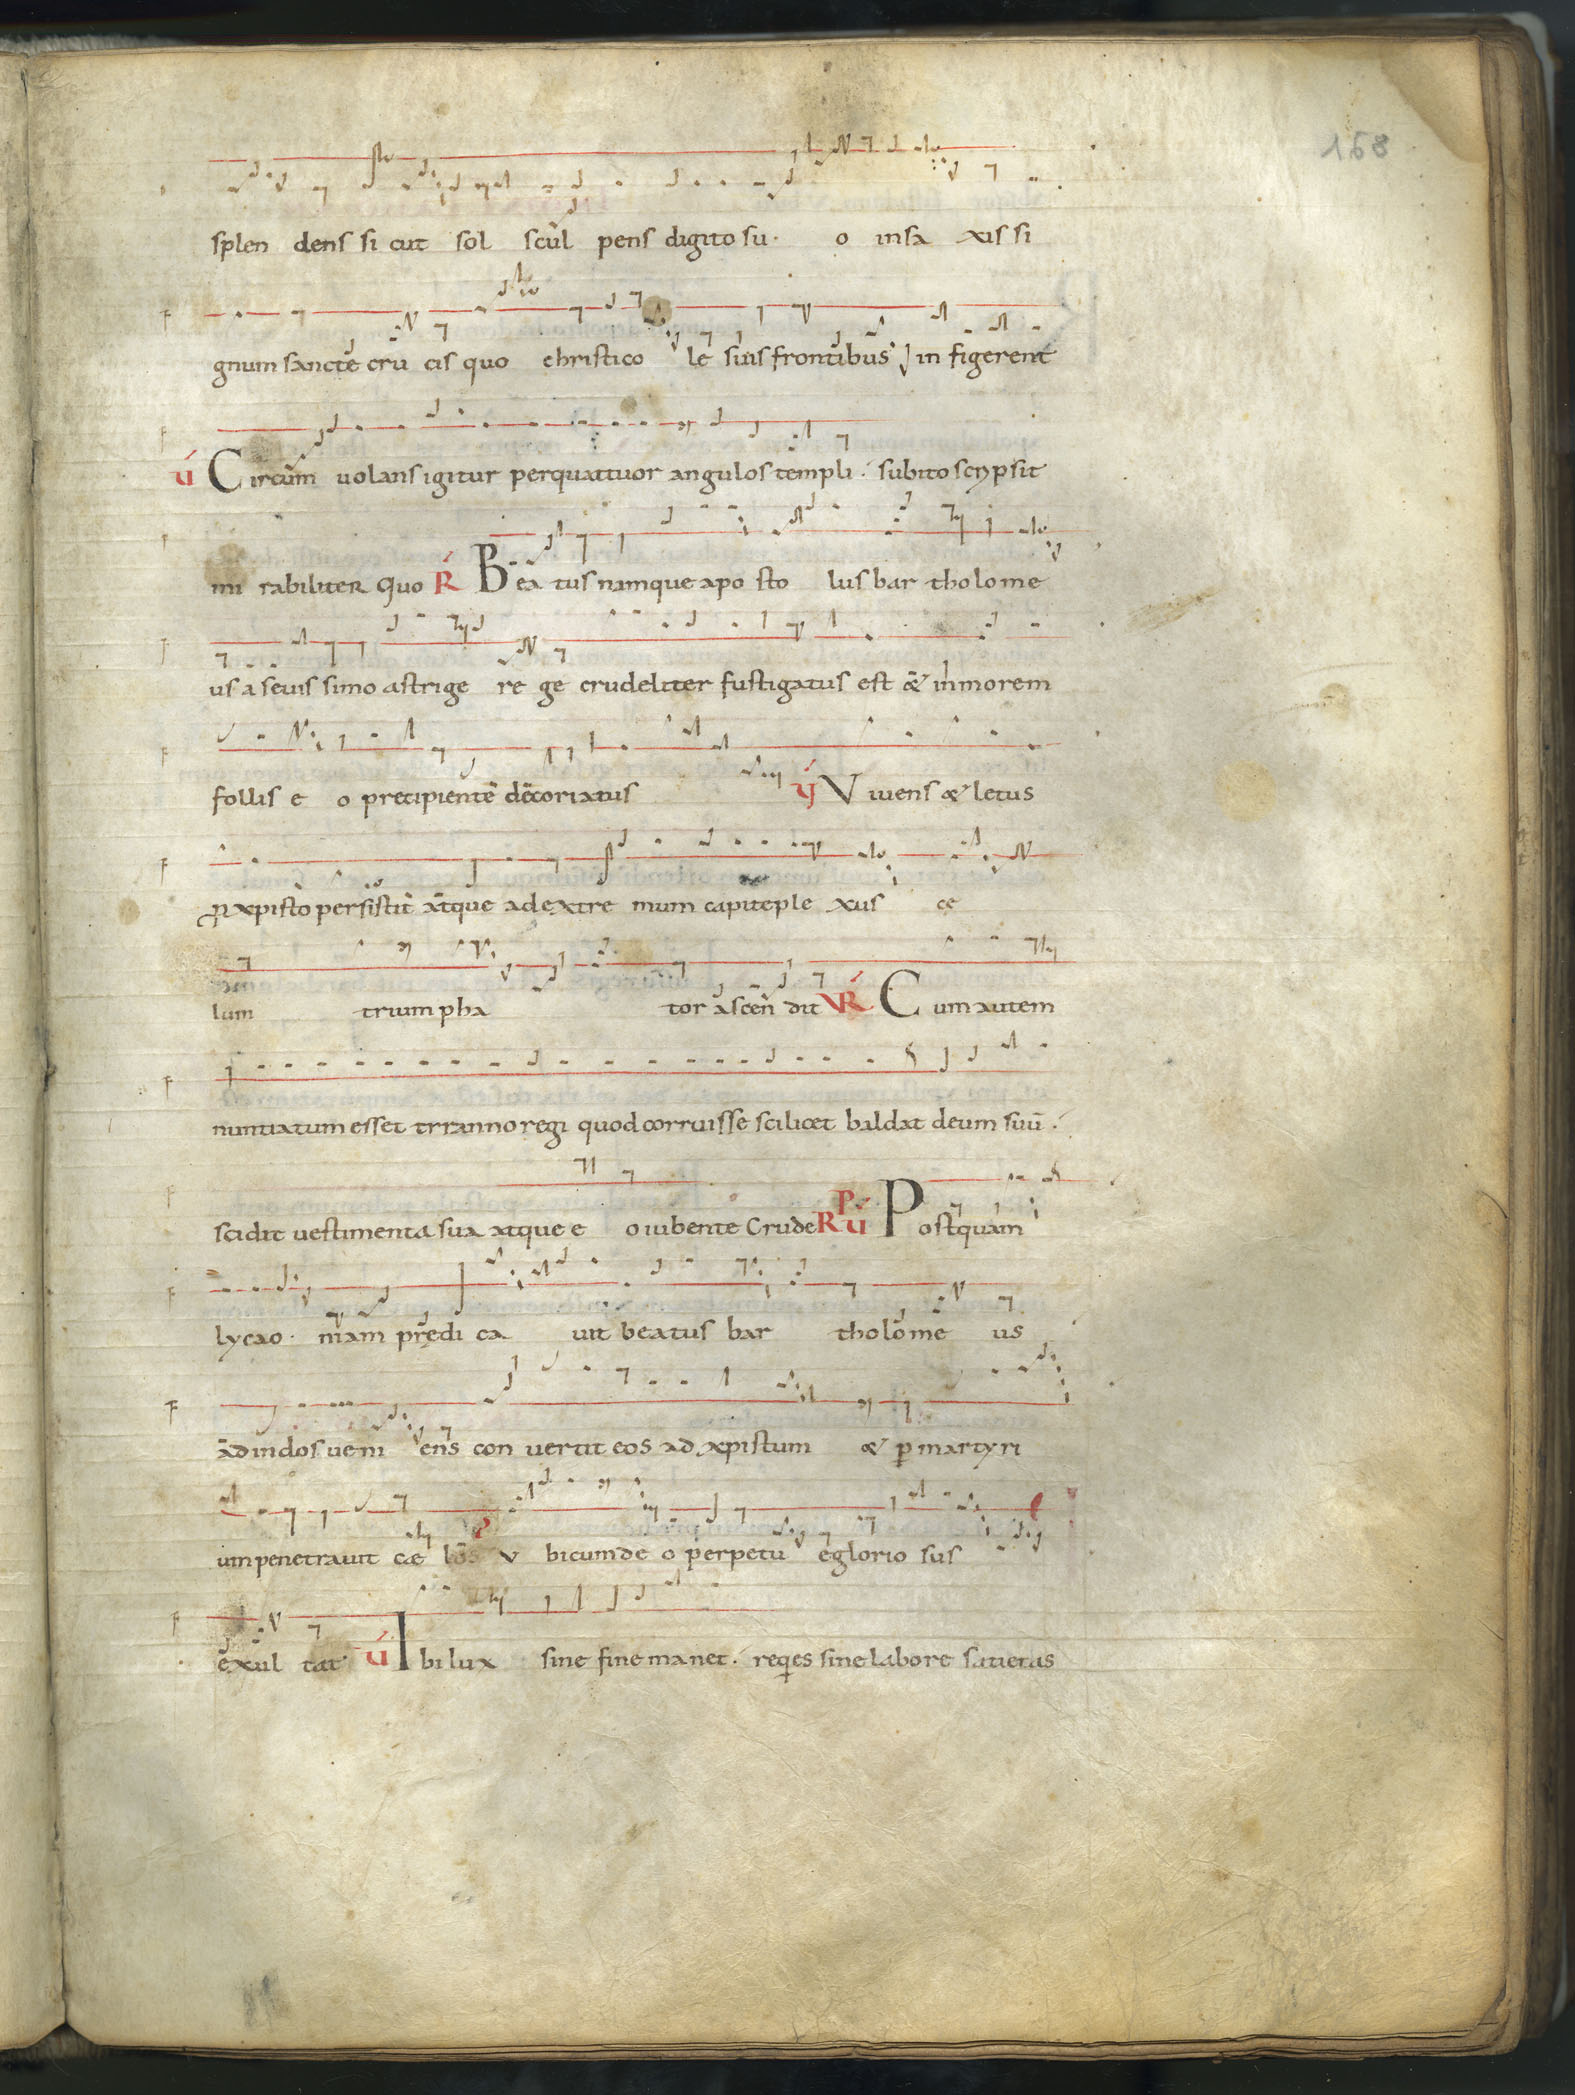 168
splen dens si cut sol scul pens digito su· o insa xis si
gnum sancte cru cis quo christico le suis frontibus in figerent
ú Circum uolans igitur perquattuor angulos templi· subito scrypsit
mi rabiliter Quo Ŕ Bea tus namque apo sto lus bar tholome
us a seuis simo astrige re ge crudeliter fustigatus est & inmorem
follis e o precipiente decoriatus Viuens & letus
xpisto persistit atque ad extre mum capiteple xus ce
lum trium pha tor ascen dit VŔ Cum autem
nuntiatum esset tyranno regi quod corruisse scilicet baldat deum suū·
scidit uestimenta sua atque e o iubente Crude R P ú Postquam
lycao· niam prędi ca uit beatus bar tholome us
ad indos ueni ens con uertit eos ad xpistum & p martyri
um penetrauit cæ los v bicumde o perpetu eglorio sus
exul tat ú Ibi lux sine fine manet· reqies sine labore satietas